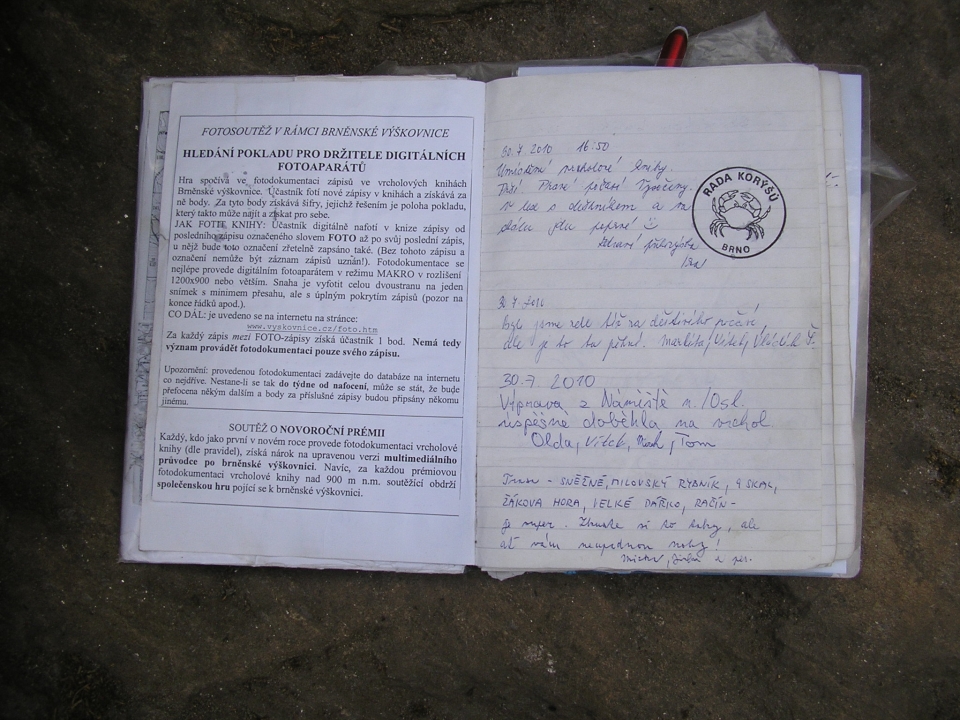 FOTOSOUTĚŽ V RÁMCI BRNĚNSKÉ VÝŠKOVNICE
HLEDÁNÍ POKLADU PRO DRŽITELE DIGITÁLNÍCH
FOTOAPARÁTŮ
Hra spočívá ve fotodokumentaci zápisů ve vrcholových knihách
Brněnské výškovnice. Účastník fotí nové zápisy v knihách a získává za
ně body. Za tyto body získává šifry, jejichž řešením je poloha pokladu,
který takto může najít a získat pro sebe.
JAK FOTIT KNIHY: Účastník digitálně nafotí v knize zápisy od
posledního zápisu označeného slovem FOTO až po svůj poslední zápis,
u nějž bude toto označení zřetelně zapsáno také. (Bez tohoto zápisu a
označení nemůže být záznam zápisů uznán!). Fotodokumentace se
nejlépe provede digitálním fotoaparátem v režimu MAKRO v rozlišení
1200x900 nebo větším. Snaha je vyfotit celou dvoustranu na jeden
snímek s minimem přesahu, ale s úplným pokrytím zápisů (pozor na
konce řádků apod.).
CO DÁL: je uvedeno se na internetu na stránce:
www.vyskovnice.cz/foto.htm
Za každý zápis mezi FOTO-zápisy získá účastník 1 bod. Nemá tedy
význam provádět fotodokumentaci pouze svého zápisu.
Upozornění: provedenou fotodokumentaci zadávejte do databáze na internetu
co nejdříve. Nestane-li se tak do týdne od nafocení, může se stát, že bude
přefocena někým dalším a body za příslušné zápisy budou připsány někomu
jinému.
SOUTĚŽ O NOVOROČNÍ PRÉMII
Každý, kdo jako první v novém roce provede fotodokumentaci vrcholové
knihy (dle pravidel), získá nárok na upravenou verzi multimediálního
průvodce po brněnské výškovnici. Navíc, za každou prémiovou
fotodokumentaci vrcholové knihy nad 900 m n.m. soutěžící obdrží
společenskou hru pojící se k brněnské výškovnici.
30.7.2010 16:50
Umístění vrcholové knihy.
Prší. Pravé počasí Vysočiny.
V lese s deštníkem a
jdu poprvé
Zdraví
RADA KORÝŠŮ
BRNO
30.7.2010
Byli jsme zde též za deštivého počasí,
ale je to tu pěkné. Markéta, Vítek, Vladík Š.
30.7. 2010
Výprava z Náměště n./Osl.
úspěšně doběhla na vrchol
Olda, Vítek, Tom
Trasa - SNĚŽNÉ, MILOVSKÝ RYBNÍK, 9 SKAL,
ŽÁKOVA HORA, VELKÉ DÁŘKO, RAČÍN -
je super. Zkuste si to taky, ale
ať vám neupadnou nohy!